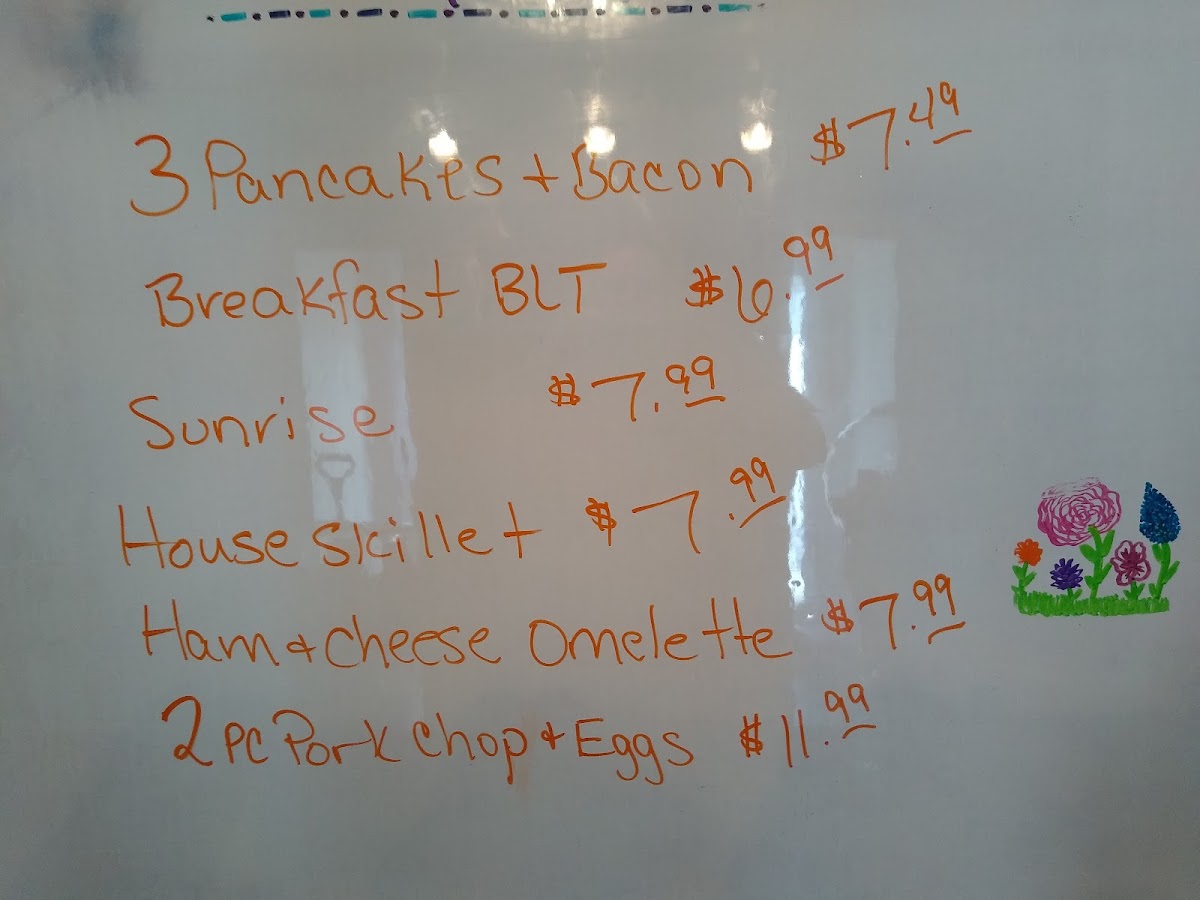 3 Pancakes + Bacon $7.49
Breakfast BLT $6.99
Sunrise $7.99
House Skillet $7.99
Ham & Cheese Omelette $7.99
2 pc Pork Chop & Eggs $11.99